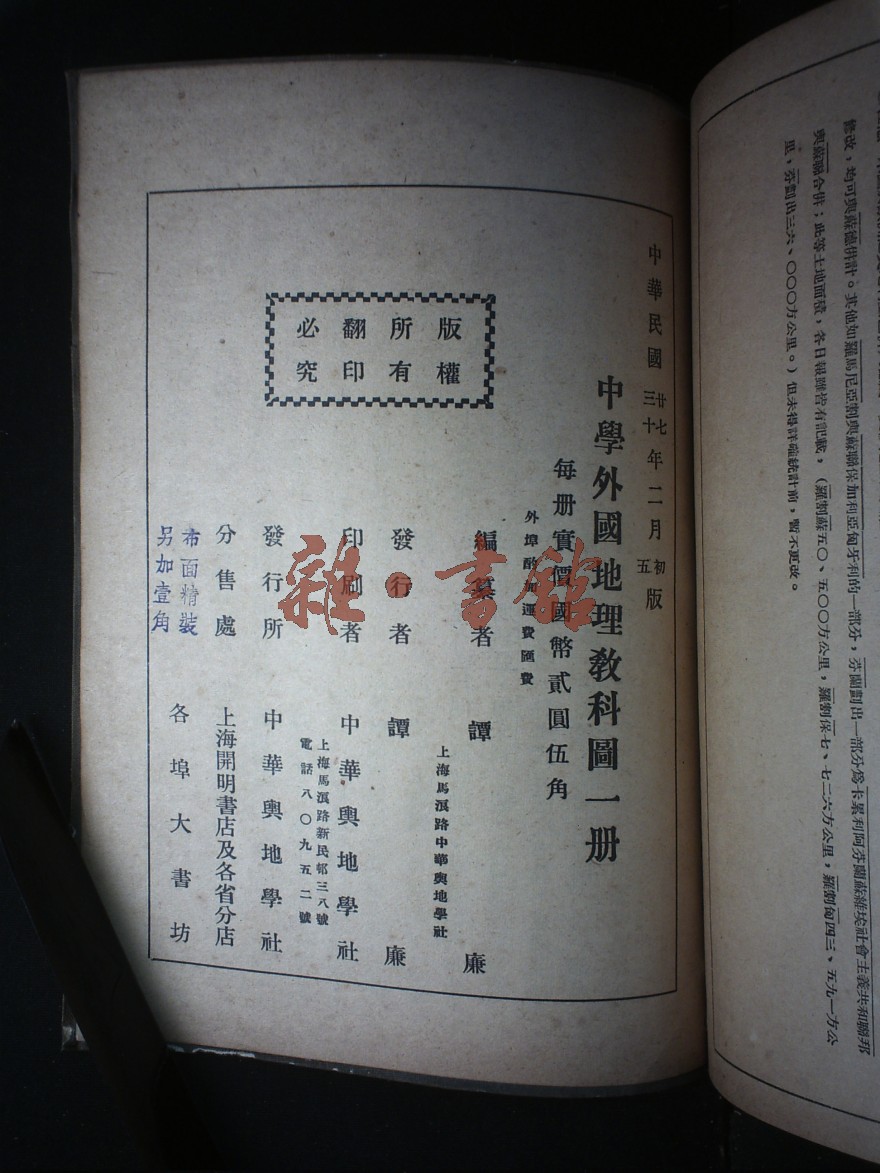 修改，均可與蘇德併計。其他如羅馬尼亞割與蘇聯保加利亞匈牙利的一部分，芬蘭劃出一部分為卡累利阿芬蘭蘇維埃社會主義共和聯邦
與蘇聯合併；此等土地面積，各日報雖皆有記載，（羅割蘇五〇、五〇〇方公里，羅割保七、七二六方公里，羅割匈四三、五九一方公
里，芬劃出三六、〇〇〇方公里。）但未得詳確統計前，暫不更改。
中華民國廿七年二月初版
三十五
中學外國地理教科圖一册
每册實價國幣貳圓伍角
外埠酌加運費匯費
版權
所有
翻印
必究
編纂者 譚廉
上海馬浪路中華輿地學社
發行者 譚廉
印刷者 中華輿地學社
上海馬浪路新民邨三八號
電話八〇九五二號
發行所 中華輿地學社
分售處 上海開明書店及各省分店
各埠大書坊
布面精裝
另加壹角
雜·書館